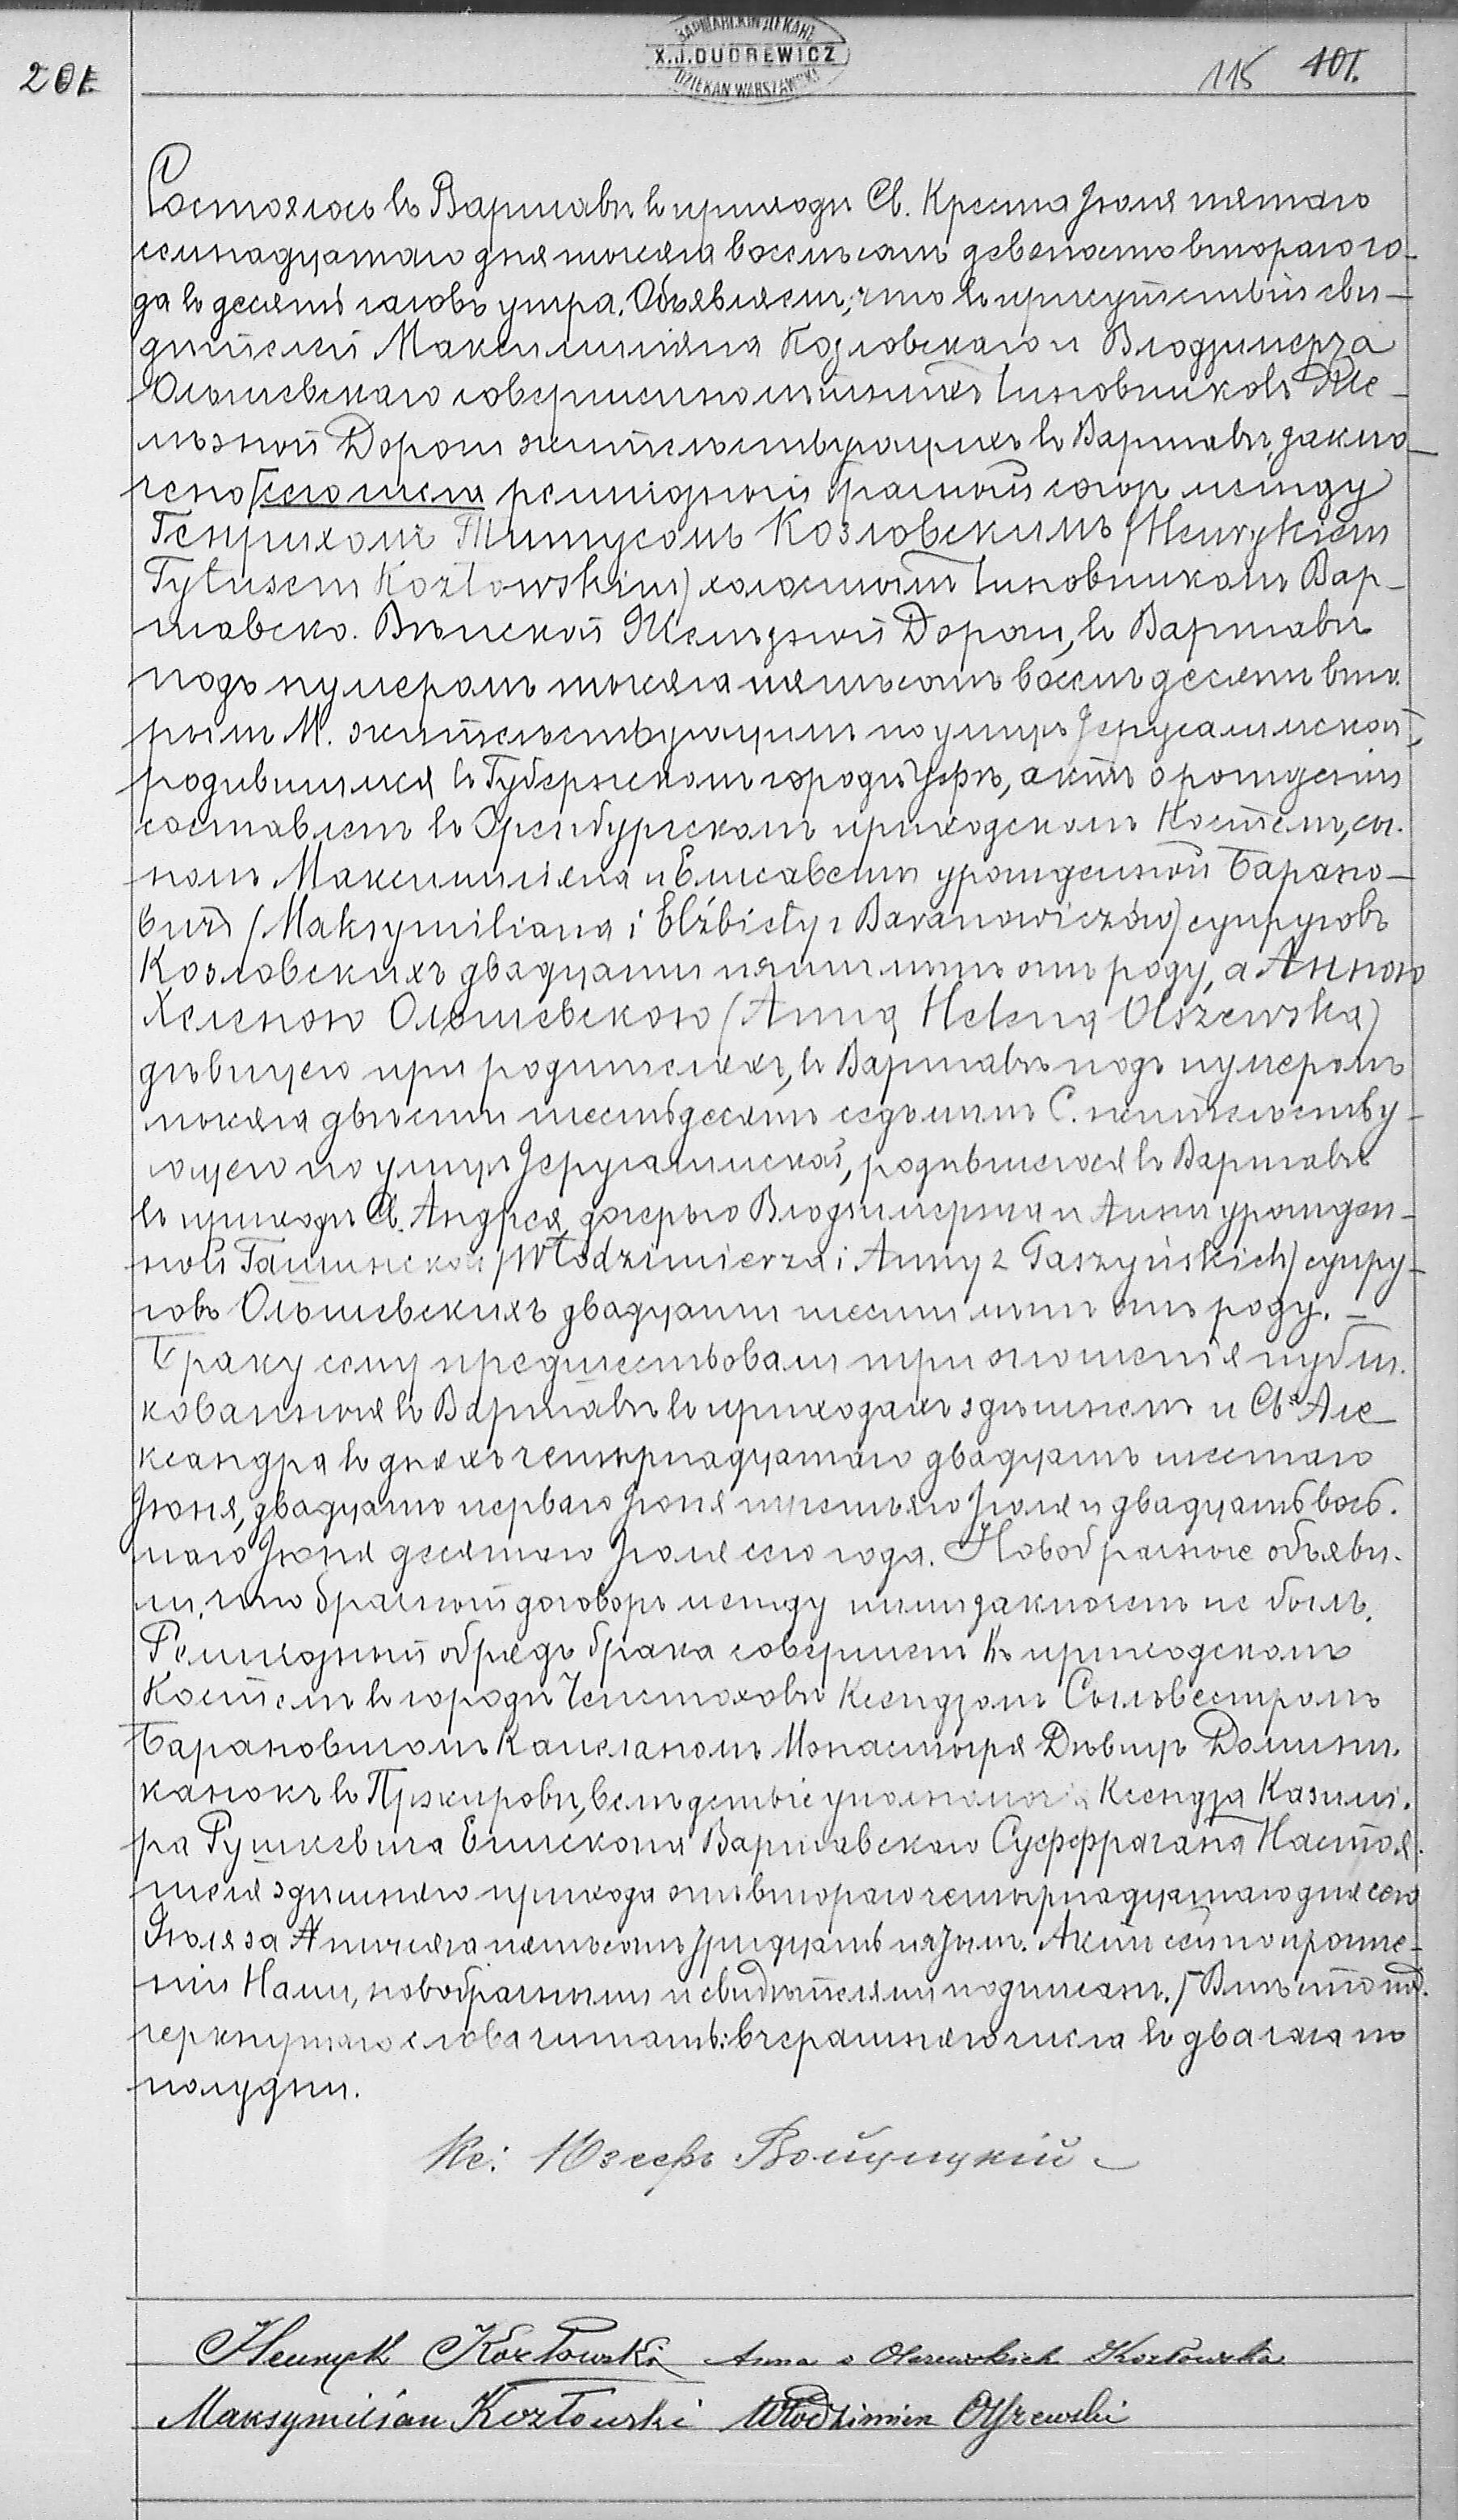 ВАРШАВСКІЙ ДЕКАНЪ
X.J.DUDREWICZ
DZIEKAN WARSZAWSKI
201.
115 101.
Состоялось въ Варшавѣ въ приходѣ Св. Креста Іюля пятаго
семнадцатаго дня тысяча восемьсотъ девяносто втораго го-
да въ десять часовъ утра. Объявляемъ, что въ присутствіи сви-
дѣтелей Максимиліяна Козловскаго и Влодзимерза
Ольшевскаго совершеннолѣтнихъ Чиновниковъ Же-
лѣзной Дороги жительствующихъ въ Варшавѣ, заклю-
чено сего числа религіозный брачный союзъ между
Генрихомъ Титусомъ Козловскимъ (Henrykiem
Tytusem Kozłowskim) холостымъ Чиновникомъ Вар-
шавско-Вѣнской Желѣзной Дороги, въ Варшавѣ
подъ нумеромъ тысяча пятьсотъ восемьдесятъ вто-
рымъ М. жительствующимъ по улицѣ Іерусалимской,
родившимся въ Губернскомъ городѣ Уфѣ, а актъ о рожденіи
составленъ въ Оренбургскомъ приходскомъ Костелѣ, сы-
номъ Максимиліяна и Елисаветы урожденной Барано-
вичъ (Maksymiliana i Elżbiety z Baranowiczów) супруговъ
Козловскихъ двадцати пяти лѣтъ отъ роду, а Анною
Хеленою Ольшевскою (Anną Heleną Olszewską)
дѣвицею при родителяхъ, въ Варшавѣ подъ нумеромъ
тысяча двѣсти шестьдесятъ седьмымъ С. жительству-
ющею по улицѣ Іерусалимской, родившеюся въ Варшавѣ
въ приходѣ Св. Андрея, дочерью Влодзимерза и Анны урожден-
ной Гашинской (Włodzimierza i Anny z Gaszyńskich) супру-
говъ Ольшевскихъ двадцати шести лѣтъ отъ роду. —
Браку сему предшествовали три оглошенія публи-
кованныя въ Варшавѣ въ приходахъ здѣшнемъ и Св. Але-
ксандра въ дняхъ четырнадцатаго двадцать шестаго
Іюня, двадцать перваго Іюня третьяго Іюля и двадцать вось-
маго Іюня десятаго Іюля сего года. Новобрачные объяви-
ли, что брачный договоръ между ними заключенъ не былъ.
Религіозный обрядъ брака совершенъ въ приходскомъ
Костелѣ въ городѣ Ченстоховѣ Ксендзомъ Сыльвестромъ
Барановичомъ Капеланомъ Монастыря Дѣвицъ Домини-
канокъ въ Пржировѣ, вслѣдствіе уполномочія Ксендза Казими-
ра Рушкевича Епископа Варшавскаго Суффрагана Настоя-
теля здѣшняго прихода отъ втораго четырнадцатаго дня сего
Іюля за № тысяча пятьсотъ тридцать пятымъ. Актъ сей по прочте-
ніи Нами, новобрачными и свидѣтелями подписанъ. / Вмѣсто под-
черкнутаго слова читать: вчерашняго числа въ два часа по
полудни.
Кс: Юзефъ Войцицкій
Henryk Kozłowski Anna z Olszewskich Kozłowska
Maksymilian Kozłowski Włodzimierz Olszewski